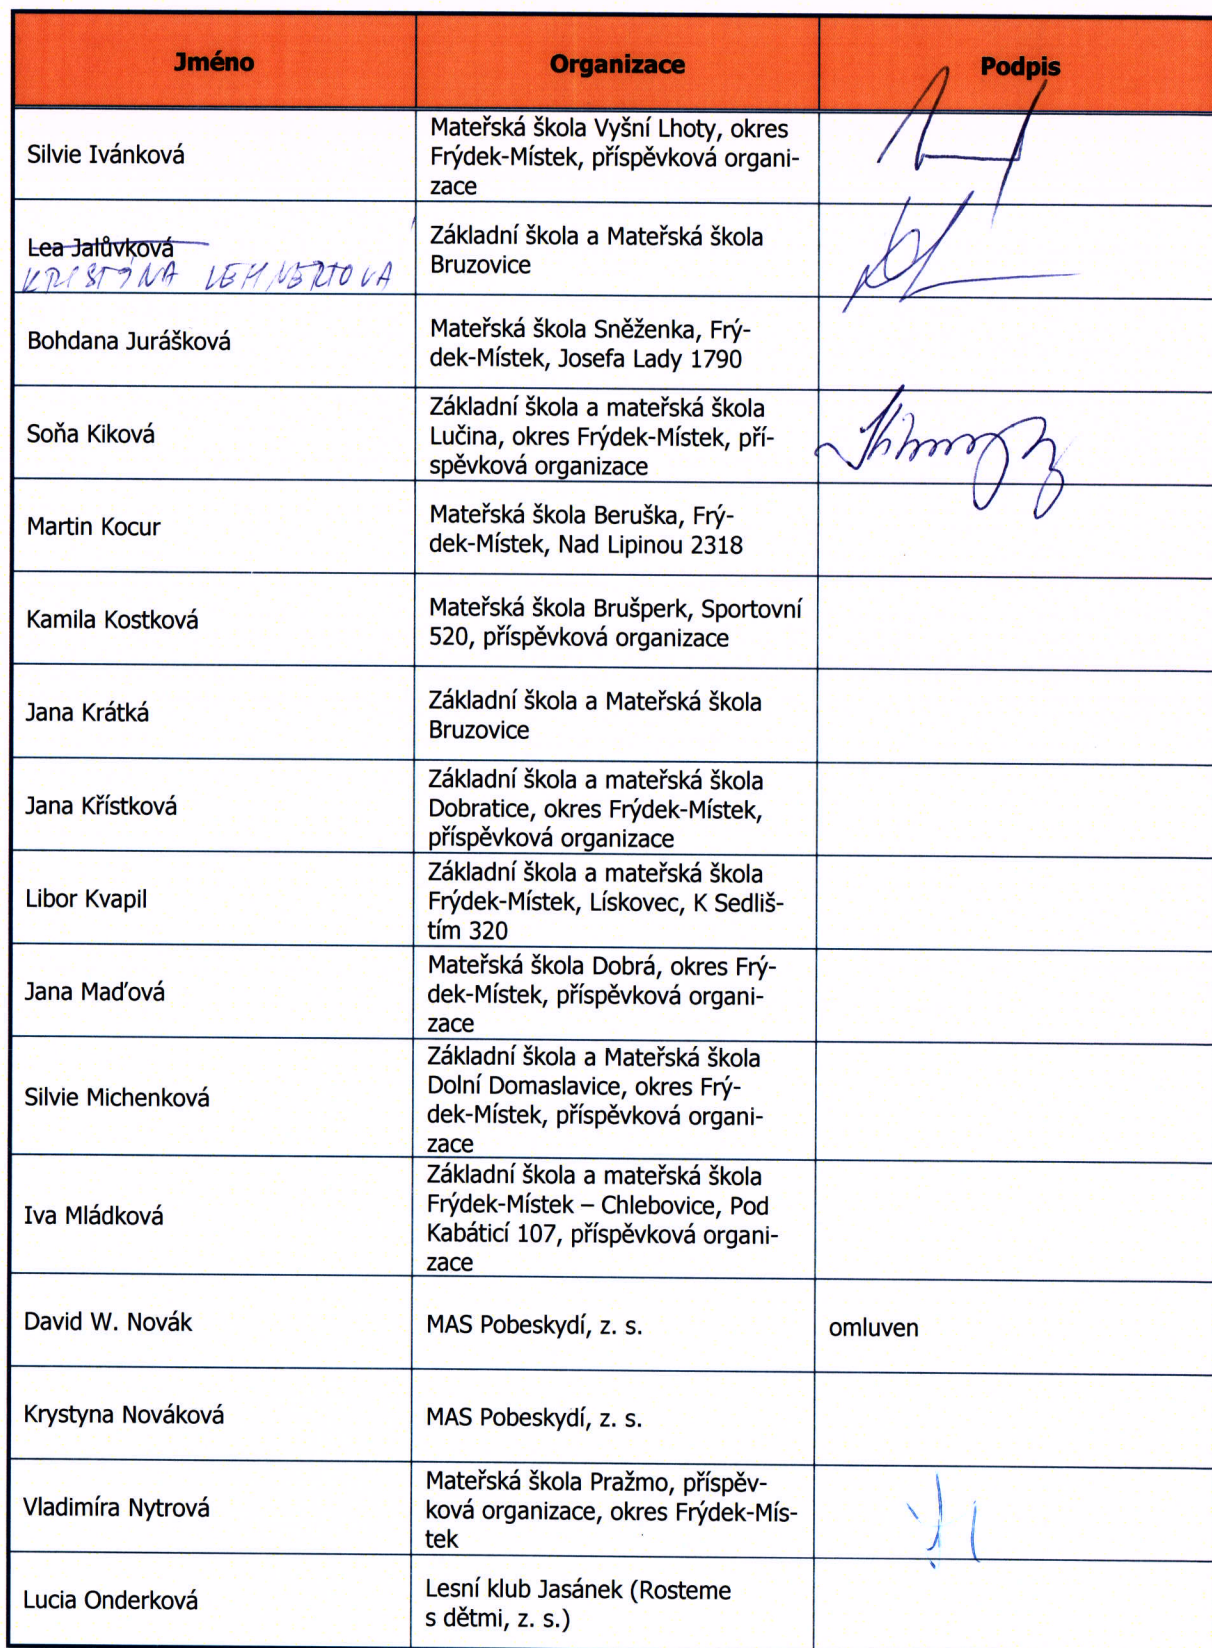 Jméno Organizace Podpis
Silvie Ivánková
Mateřská škola Vyšní Lhoty, okres
Frýdek-Místek, příspěvková organi-
zace
Lea Jalůvková
KRISTÝNA LEHNERTOVA
Základní škola a Mateřská škola
Bruzovice
Bohdana Jurášková
Mateřská škola Sněženka, Frý-
dek-Místek, Josefa Lady 1790
Soňa Kiková
Základní škola a mateřská škola
Lučina, okres Frýdek-Místek, pří-
spěvková organizace
Martin Kocur
Mateřská škola Beruška, Frý-
dek-Místek, Nad Lipinou 2318
Kamila Kostková
Mateřská škola Brušperk, Sportovní
520, příspěvková organizace
Jana Krátká
Základní škola a Mateřská škola
Bruzovice
Jana Křístková
Základní škola a mateřská škola
Dobratice, okres Frýdek-Místek,
příspěvková organizace
Libor Kvapil
Základní škola a mateřská škola
Frýdek-Místek, Lískovec, K Sedliš-
tím 320
Jana Maďová
Mateřská škola Dobrá, okres Frý-
dek-Místek, příspěvková organi-
zace
Silvie Michenková
Základní škola a Mateřská škola
Dolní Domaslavice, okres Frý-
dek-Místek, příspěvková organi-
zace
Iva Mládková
Základní škola a mateřská škola
Frýdek-Místek – Chlebovice, Pod
Kabáticí 107, příspěvková organi-
zace
David W. Novák
MAS Pobeskydí, z. s.
omluven
Krystyna Nováková
MAS Pobeskydí, z. s.
Vladimíra Nytrová
Mateřská škola Pražmo, příspěv-
ková organizace, okres Frýdek-Mís-
tek
Lucia Onderková
Lesní klub Jasánek (Rosteme
s dětmi, z. s.)